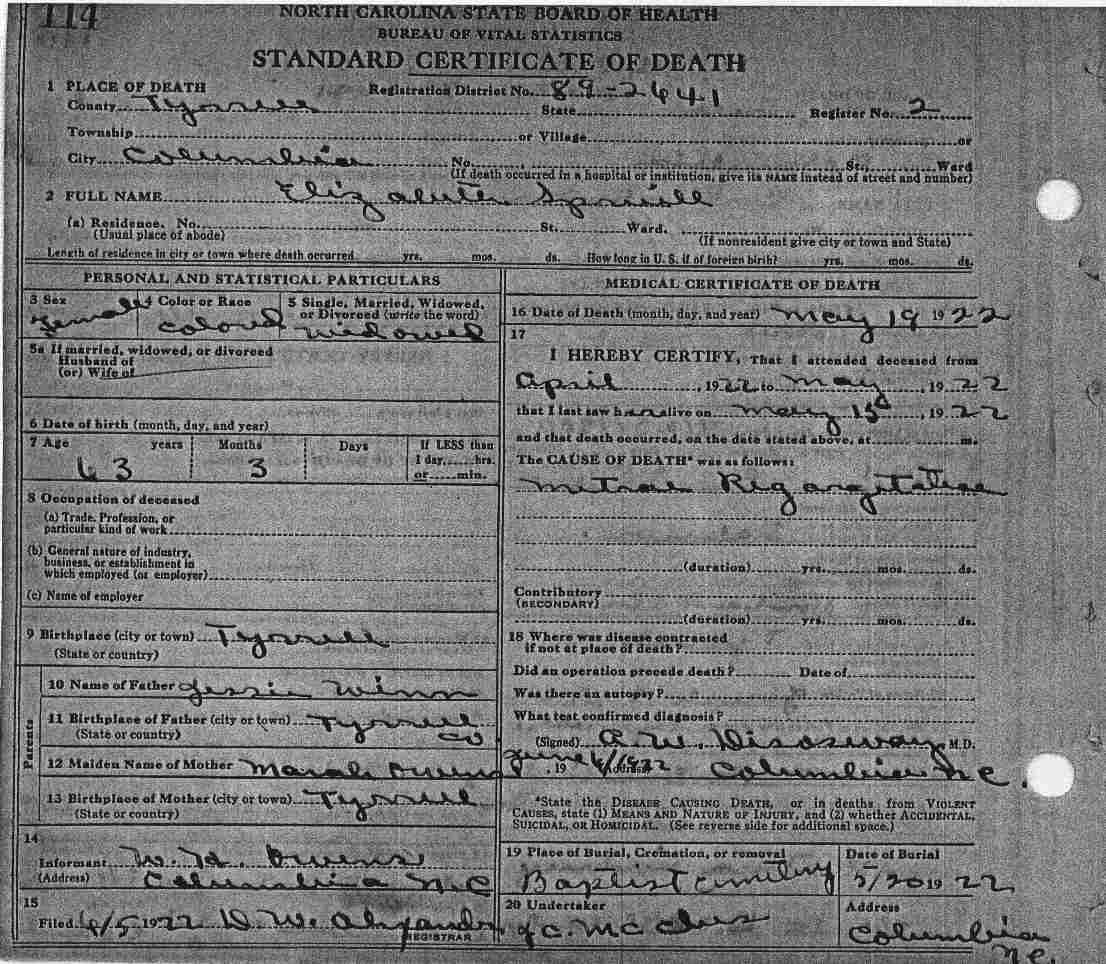 114
NORTH CAROLINA STATE BOARD OF HEALTH
BUREAU OF VITAL STATISTICS
STANDARD CERTIFICATE OF DEATH
1 PLACE OF DEATH Registration District No. 89-2641
County Tyrrell State Register No. 2
Township or Village or
City Columbia No. , St., Ward
(If death occurred in a hospital or institution, give its NAME instead of street and number)
2 FULL NAME Elizabeth Spruill
(a) Residence. No. St. Ward.
(Usual place of abode) (If nonresident give city or town and State)
Length of residence in city or town where death occurred yrs. mos. ds. How long in U. S. if of foreign birth? yrs. mos. ds.
PERSONAL AND STATISTICAL PARTICULARS
3 Sex 4 Color or Race 5 Single, Married, Widowed, or Divorced (write the word)
Female colored widowed
5a If married, widowed, or divorced
Husband of
(or) Wife of
6 Date of birth (month, day, and year)
7 Age years Months Days If LESS than
1 day, hrs.
63 3 or min.
8 Occupation of deceased
(a) Trade, Profession, or
particular kind of work
(b) General nature of industry,
business, or establishment in
which employed (or employer)
(c) Name of employer
9 Birthplace (city or town) Tyrrell
(State or country)
Parents
10 Name of Father Jessie Winn
11 Birthplace of Father (city or town) Tyrrell
(State or country) co
12 Maiden Name of Mother Owens
13 Birthplace of Mother (city or town) Tyrrell
(State or country)
14
Informant W. H. Owens
(Address) Columbia NC
15
Filed 6/5 1922 D. W.
REGISTRAR
MEDICAL CERTIFICATE OF DEATH
16 Date of Death (month, day, and year) May 19 1922
17
I HEREBY CERTIFY, That I attended deceased from
April , 1922 to May , 1922
that I last saw her alive on May 15 , 1922
and that death occurred, on the date stated above, at m.
The CAUSE OF DEATH* was as follows:
Mitral Regargitation
(duration) yrs. mos. ds.
Contributory
(SECONDARY)
(duration) yrs. mos. ds.
18 Where was disease contracted
if not at place of death?
Did an operation precede death? Date of
Was there an autopsy?
What test confirmed diagnosis?
(Signed) A. W. Disosway M.D.
June , 19 6/1922 Columbia N.C.
*State the DISEASE CAUSING DEATH, or in deaths from VIOLENT
CAUSES, state (1) MEANS AND NATURE OF INJURY, and (2) whether ACCIDENTAL,
SUICIDAL, OR HOMICIDAL. (See reverse side for additional space.)
19 Place of Burial, Cremation, or removal Date of Burial
Baptist cemetery 5/20 1922
20 Undertaker Address
J C. Columbia
N.C.